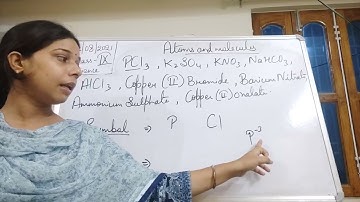 /08/2021
Atoms and molecules
ss-IX
ience
PCl3, K2SO4, KNO3, NaHCO3,
AlCl3, Copper (II) Bromide, Barium Nitrate,
Ammonium Sulphate, Copper (II) oxalate.
Symbol ⇒ P Cl
P-3
⇒